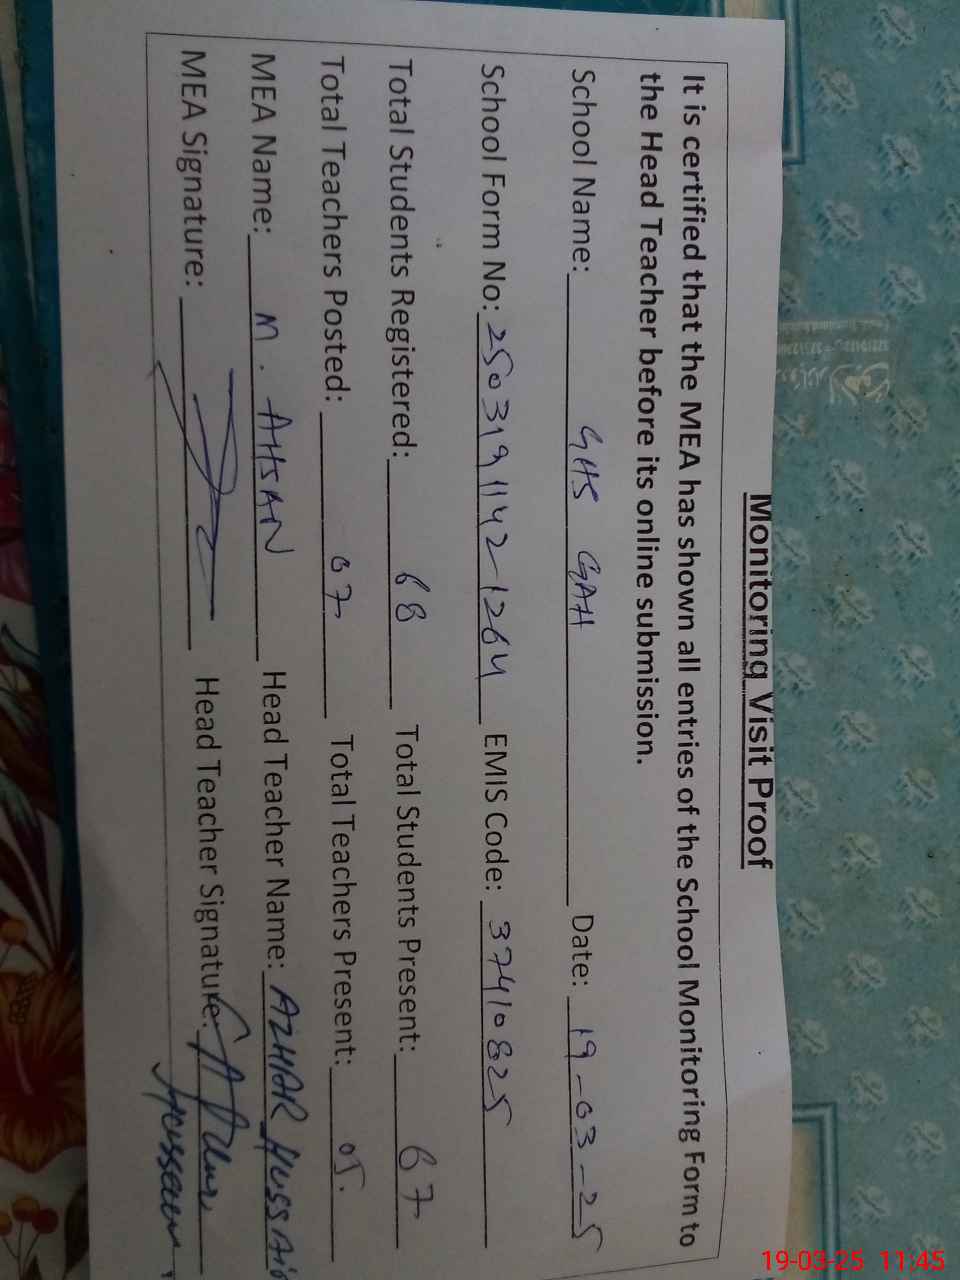 Monitoring Visit Proof
It is certified that the MEA has shown all entries of the School Monitoring Form to
the Head Teacher before its online submission.
School Name: GHS GAH Date: 19-03-25
School Form No: 25031911421264 EMIS Code: 37410825
Total Students Registered: 68 Total Students Present: 67
Total Teachers Posted: 07 Total Teachers Present: 05.
MEA Name: M. AHSAN Head Teacher Name: AZHAR HUSSAI
MEA Signature: Head Teacher Signature:
19-03-25 11:45